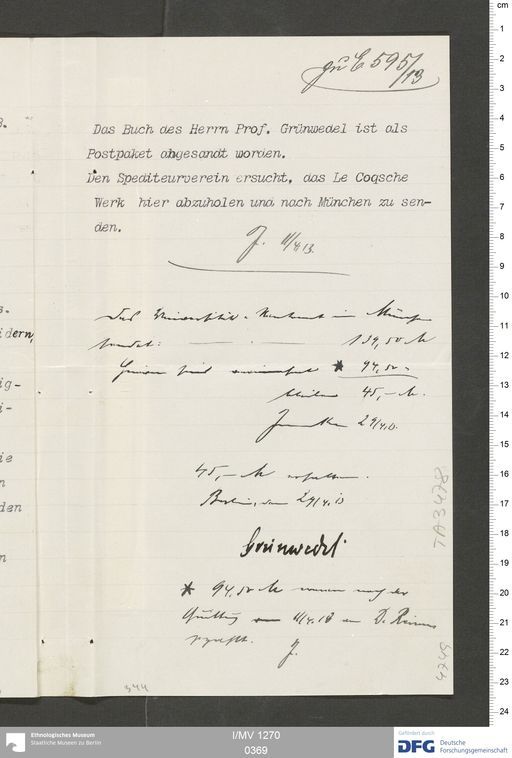 zu E 595/13
Das Buch des Herrn Prof. Grünwedel ist als
Postpaket abgesandt worden.
Den Spediteurverein ersucht, das Le Coqsche
Werk hier abzuholen und nach München zu sen-
den.
J. 11/4.13.
Das Universität. in München
sendet: 139,50 M
Hiervon sind * 94,50 "
bleiben 45,- M.
29/4.13.
45,- M erhalten.
Berlin, den 29/4.13
Grünwedel
* 94,50 M wurden nach der
Quittung 11/4.13 an D. Reimer
gezahlt. J.
344
TA3478
4749
3.
s.
idern,
ig-
i-
ie
n
den
n
cm
1
2
3
4
5
6
7
8
9
10
11
12
13
14
15
16
17
18
19
20
21
22
23
24
Ethnologisches Museum
Staatliche Museen zu Berlin
I/MV 1270
0369
Gefördert durch
DFG Deutsche
Forschungsgemeinschaft